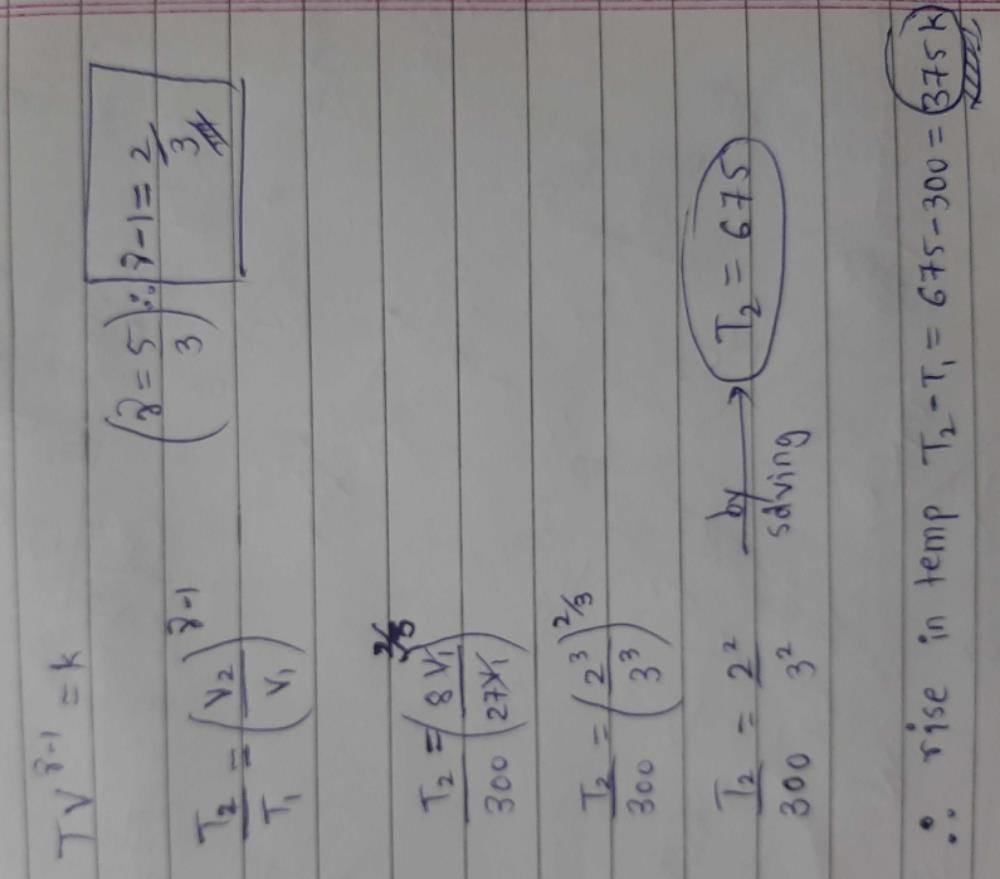 TV^(γ-1) = k
(γ = 5/3) ∴ γ-1 = 2/3
T₂/T₁ = (V₂/V₁)^(γ-1)
T₂/300 = (8V₁/27V₁)^(2/3)
T₂/300 = (2³/3³)^(2/3)
T₂/300 = 2²/3² by solving → T₂ = 675
∴ rise in temp T₂-T₁ = 675-300 = 375k